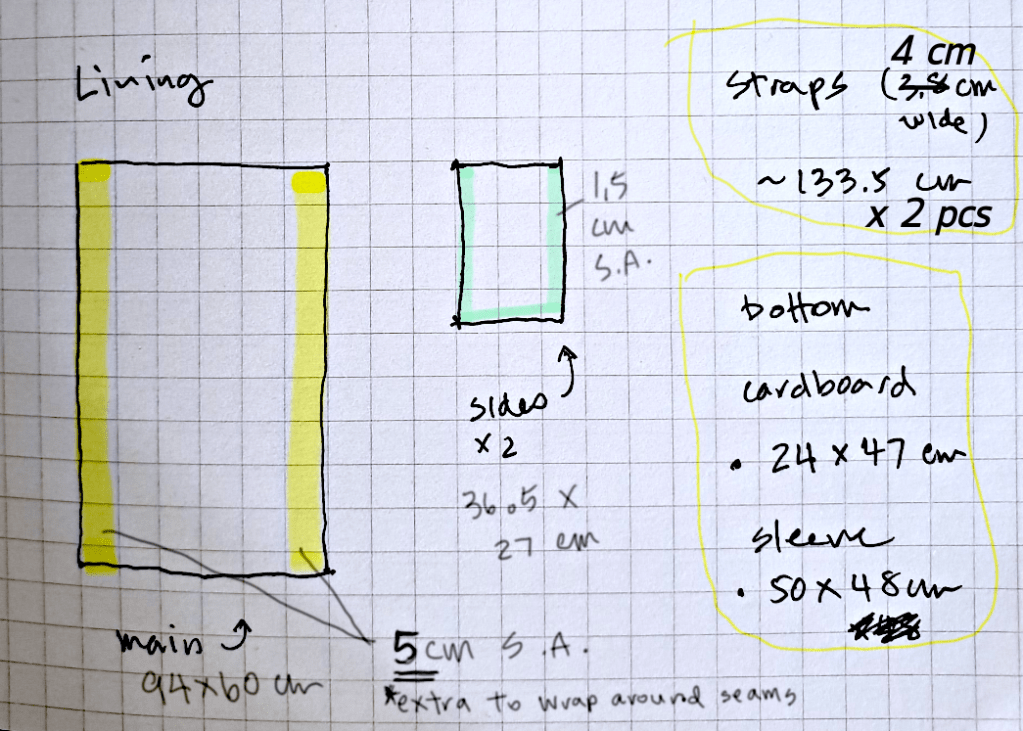 Lining
1,5
cm
S.A.
sides
x 2
36.5 x
27 cm
main
94x60 cm
5cm S.A.
*extra to wrap around seams
4 cm
straps (3.8 cm
wide)
~133.5 cm
x 2 pcs
bottom
cardboard
• 24 x 47 cm
sleeve
• 50 x 48 cm